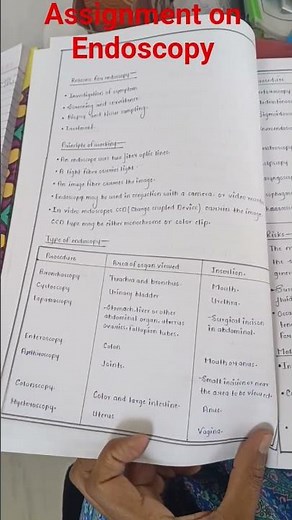 Assignment on
Endoscopy
Reasons for endoscopy
• Investigation of symptom
• Screening and surveillance
• Biopsy and tissue sampling.
• Treatment
Principle of working -
• An endoscope uses two fibre optic lines.
• A light fibre carries light.
• An image fibre carries the image.
• Endoscopy may be used in conjunction with a camera or video
• In video endoscopes CCD (charge coupled Device) carries the image
CCD type may be either monochrome or color clip.
Type of endoscopy -
Procedure Area or organ viewed Insertion.
Bronchoscopy Trachea and bronchus. Mouth.
Cystoscopy Urinary bladder Urethra.
Laparoscopy Stomach, liver or other abdominal organ, uterus ovaries, fallopian tubes. Surgical incision in abdominal.
Enteroscopy Colon Mouth or anus.
Arthroscopy Joints. Small incision near the area to be viewed.
Colonoscopy Colon and large intestine. Anus.
Hysteroscopy Uterus Vagina.
Risks